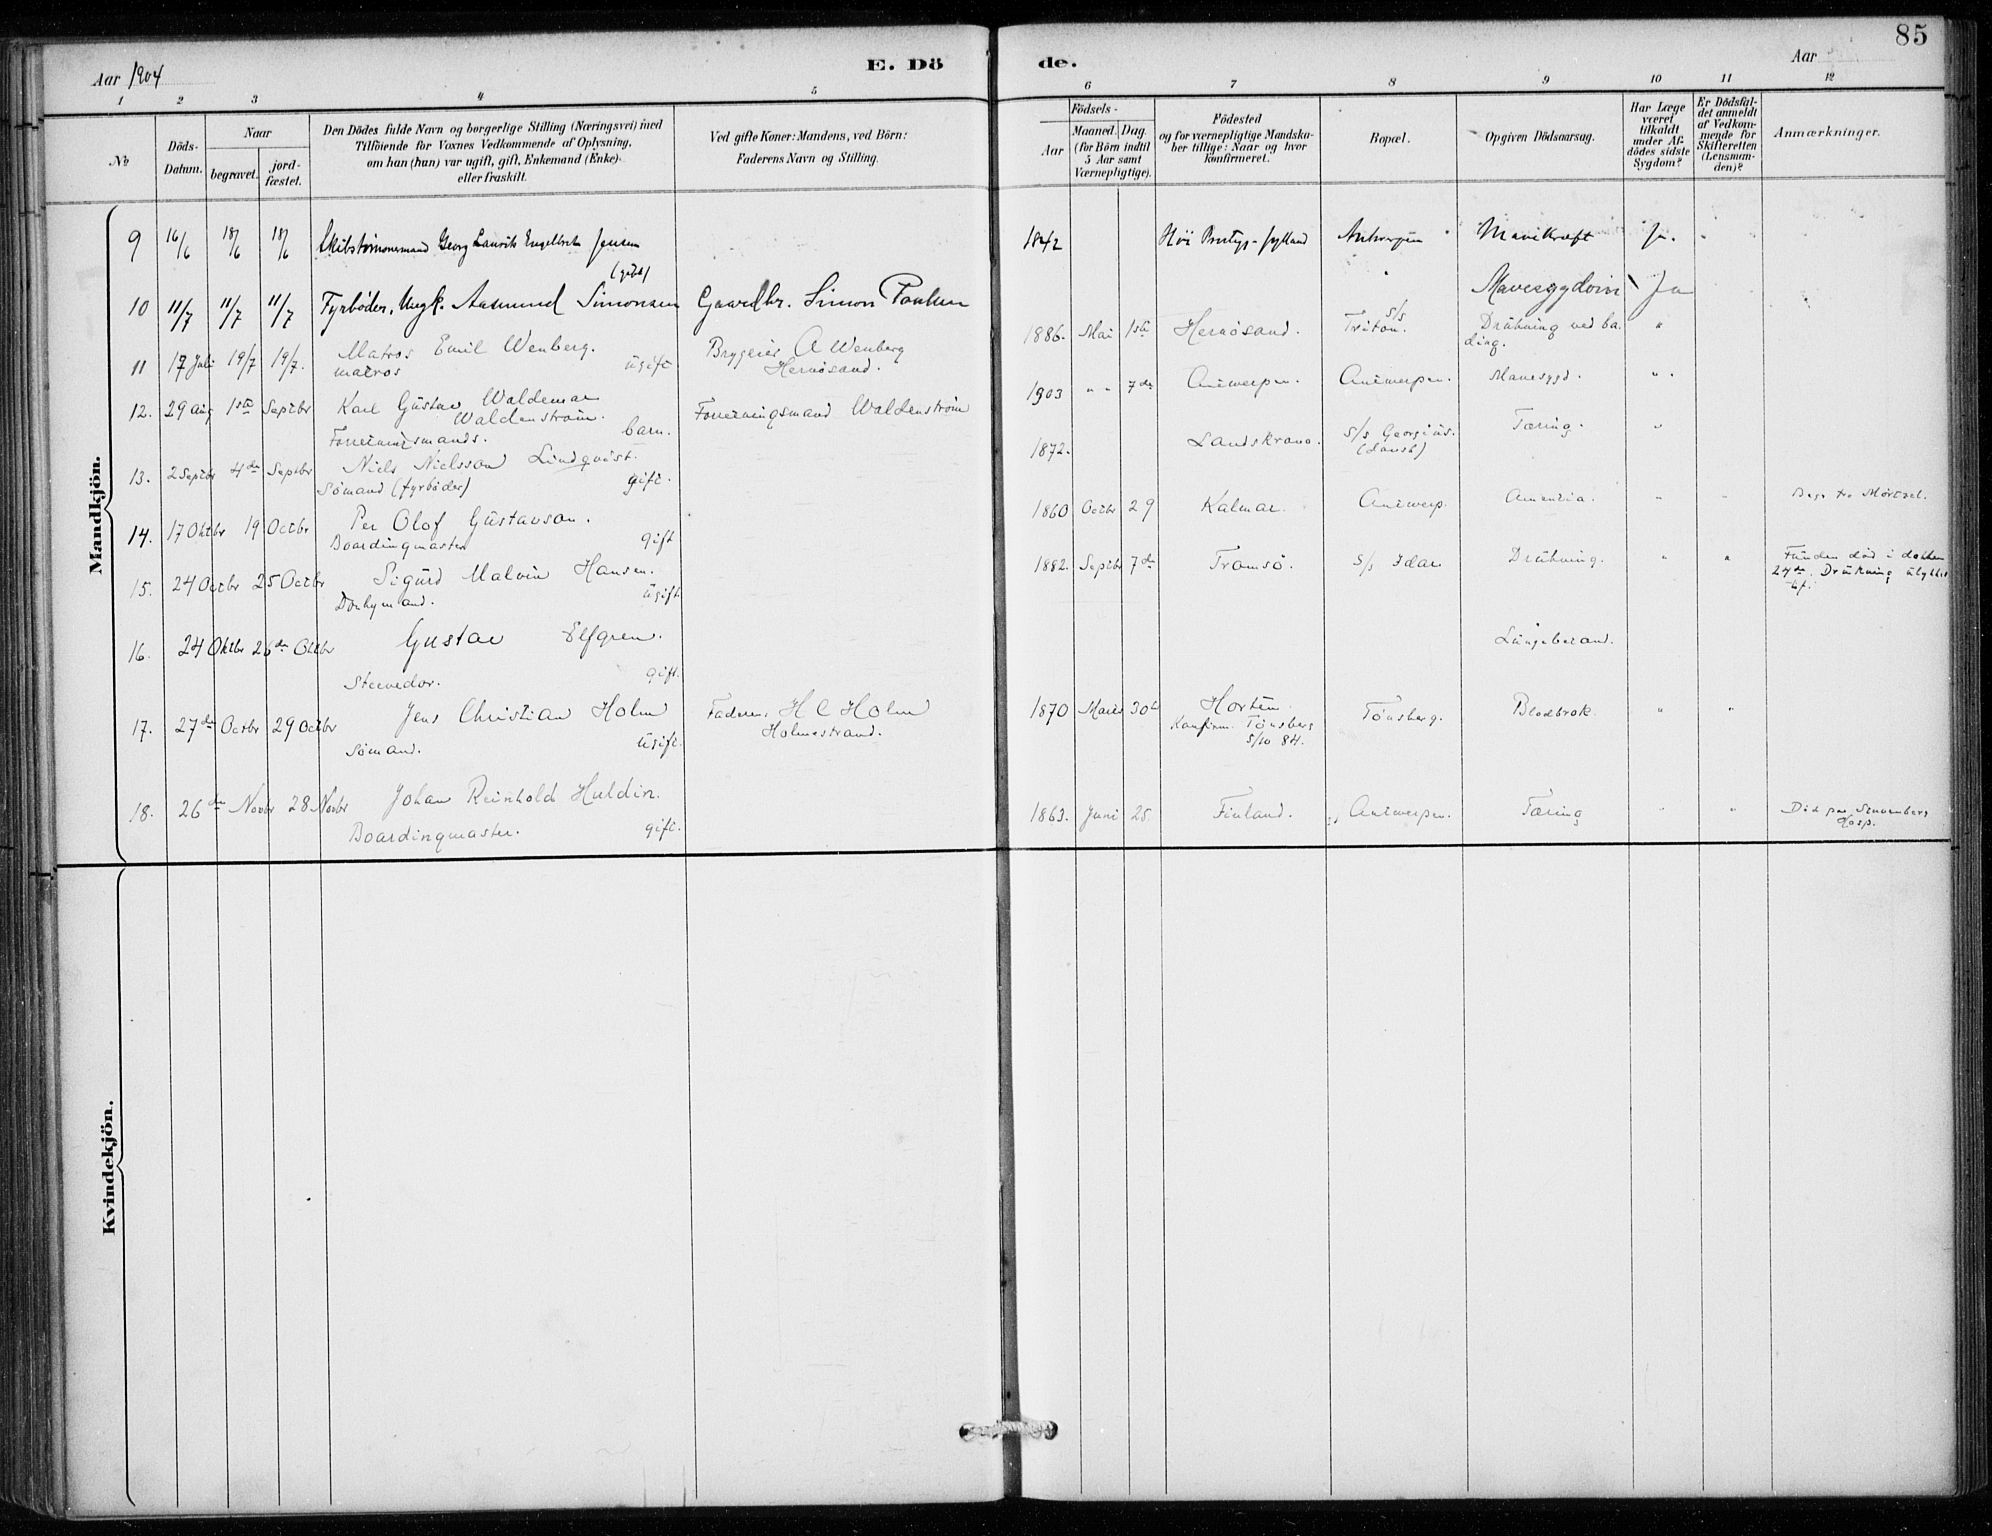 85
Aar 1904
E. Dö
de.
Aar
1 2 3 4 5 6 7 8 9 10 11 12
No
Döds-Datum.
Naar
begravet.
jord-fæstet.
Den Dödes fulde Navn og borgerlige Stilling (Næringsvei) med
Tilföiende for Voxnes Vedkommende af Oplysning,
om han (hun) var ugift, gift, Enkemand (Enke)
eller fraskilt.
Ved gifte Koner: Mandens, ved Börn:
Faderens Navn og Stilling.
Födsels-
Aar
Maaned. Dag.
(for Börn indtil
5 Aar samt
Værnepligtige).
Födested
og for værnepligtige Mandska-
ber tillige: Naar og hvor
konfirmeret.
Bopæl.
Opgiven Dödsaarsag.
Har Læge
været
tilkaldt
under Af-
dödes sidste
Sygdom?
Er Dödsfal-
det anmeldt
af Vedkom-
mende for
Skifteretten
(Lensman-
den)?
Anmærkninger.
Mandkjön.
9 16/6 18/6 18/6 Skibstømmermand Georg Laurits Engelbret Jensen
(gift)
1842 Antwerpen Mavekræft Ja.
10 11/7 11/7 11/7 Fyrbøder, Ungk. Aasmund Simonsen Gaardbr. Simon Paulsen
Mavesygdom Ja
11 17 Juli 19/7 19/7. Matros Emil Wenberg.
matros ugift
Bryggeier A Wenberg
Hernösand.
1886. Mai 1ste Hernösand. S/S Triton. Drukning ved ba-
ding. "
12. 29 Aug 1ste Septbr Karl Gustav Waldemar
Waldenstrøm.
Forretningsmands. barn.
Forretningsmand Waldenstrøm
1903 " " 7de Antwerpen. Antwerpen. Mavesygd. "
13. 2 Septbr 4de Septbr Niels Nielsson Lindqvist.
Sømand (fyrbøder) gift.
1872. Landskrona. S/S Georgius.
(dansk) Tæring. "
14. 17 Oktbr 19 Octbr Per Olof Gustavson.
Boardingmaster gift
1860 Octbr 29 Kalmar. Antwerp. " "
15. 24 Octbr 25 Octbr Sigurd Malvin Hansen.
Donkymand. ugift
1882. Septbr 7de Tromsø. S/S Idar Drukning. " " Funden død i dokken
24de. Drukning ulykkes-
tilf.
16. 24 Oktbr 26de Oktbr Gustav Elfgren.
Steevedor. gift.
17. 27de Octbr 29 Octbr Jens Christian Holm
Sømand. Ugift.
Faderen, H C Holm
Holmestrand.
1870 Marts 30te Horten.
Konfirm. Tønsberg
5/10 84.
Tønsberg. " "
18. 26de Novbr 28 Novbr Johan Reinhold Huldin.
Boardingmaster. gift.
1863. Juni 25. Finland. Antwerpen. Tæring " " Død paa Stuivenberg
Hosp.
Kvindekjön.